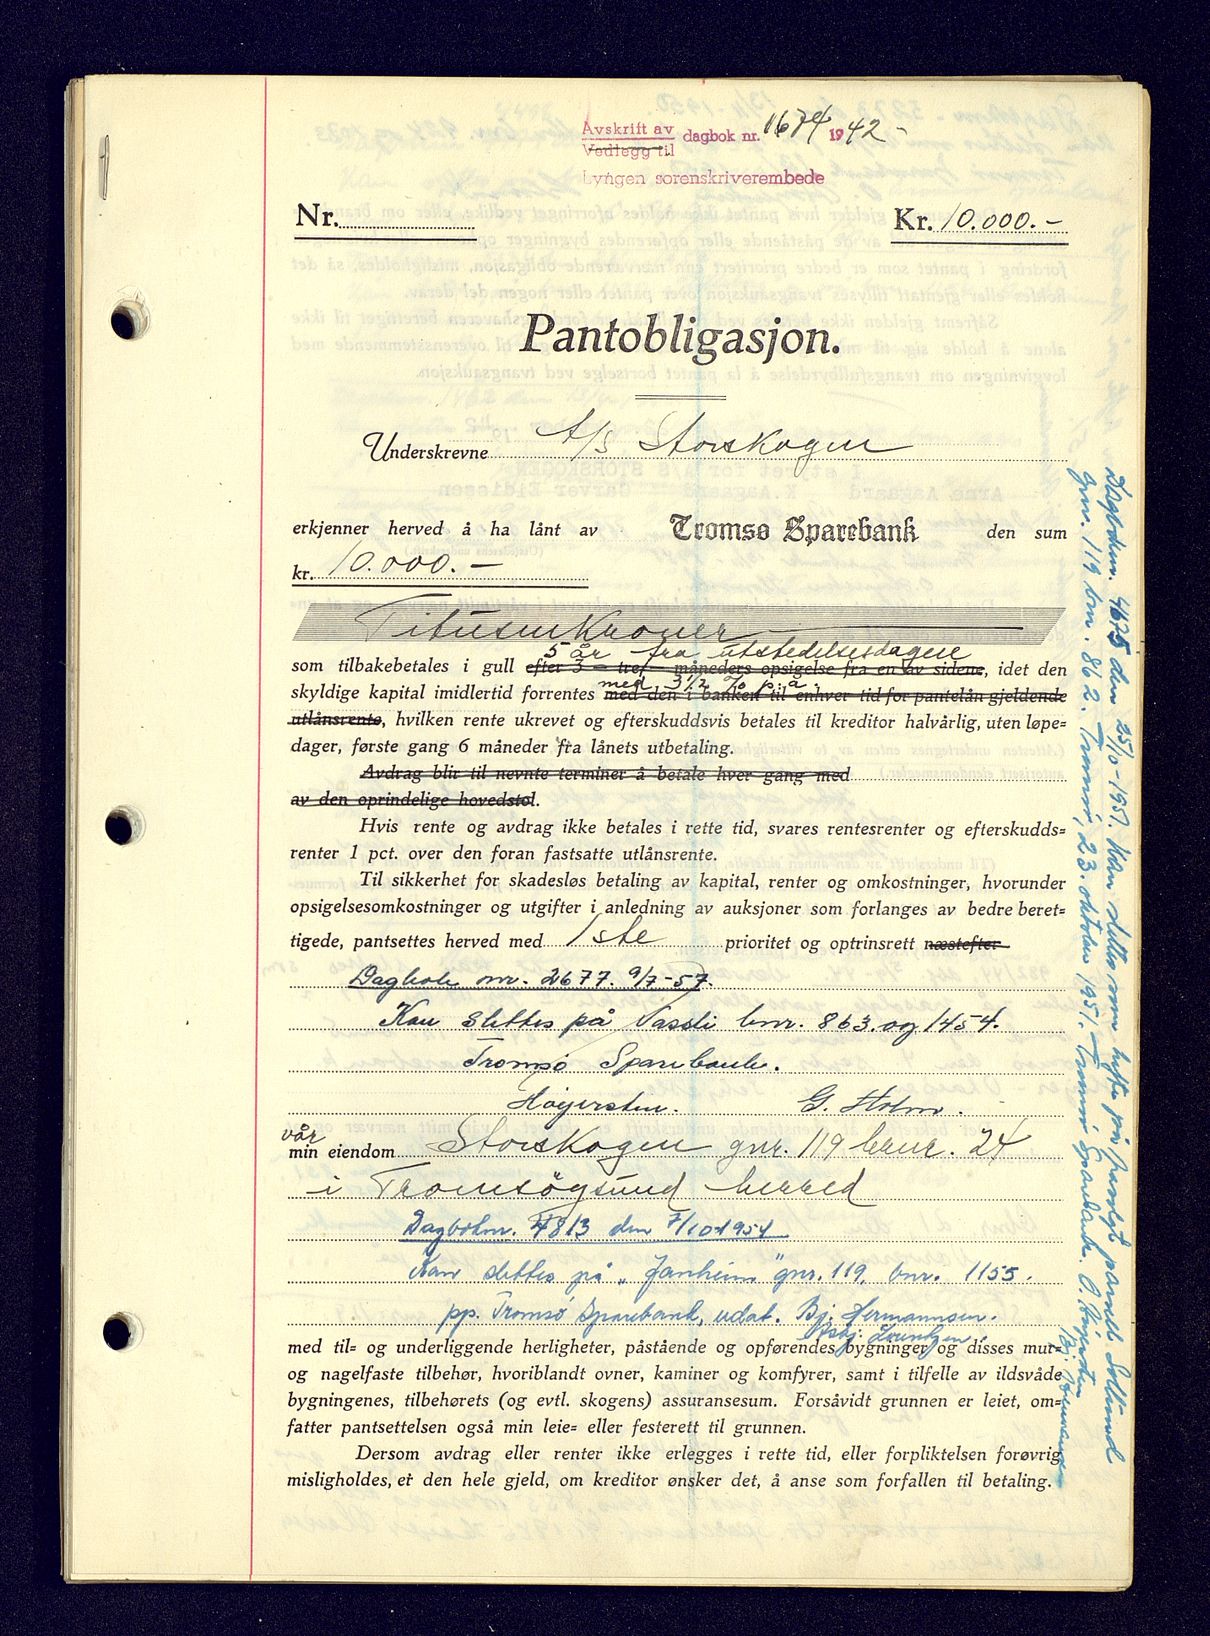 Avskrift av dagbok nr. 1674 1942-
Vedlegg til
Lyngen sorenskriverembede
Nr.
Kr. 10.000.-
Pantobligasjon.
Underskrevne A/S Storskogen
erkjenner herved å ha lånt av Tromsø Sparebank den sum
kr. 10.000.-
Titusen kroner
5 år fra utstedelsesdagen
som tilbakebetales i gull efter 3 - tre - måneders opsigelse fra en av sidene, idet den
med 3 1/2 % p.a.
skyldige kapital imidlertid forrentes med den i banken til enhver tid for pantelån gjeldende
utlånsrente, hvilken rente ukrevet og efterskuddsvis betales til kreditor halvårlig, uten løpe=
dager, første gang 6 måneder fra lånets utbetaling.
Avdrag blir til nevnte terminer å betale hver gang med
av den oprindelige hovedstol.
Hvis rente og avdrag ikke betales i rette tid, svares rentesrenter og efterskudds=
renter 1 pct. over den foran fastsatte utlånsrente.
Til sikkerhet for skadesløs betaling av kapital, renter og omkostninger, hvorunder
opsigelsesomkostninger og utgifter i anledning av auksjoner som forlanges av bedre beret=
tigede, pantsettes herved med 1ste prioritet og optrinsrett næstefter
Dagbok nr. 2677. 9/7-57.
Kan slettes på Vassli bnr. 863. og 1454.
Tromsø Sparebank.
Høyersten. G. Holm.
vår
min eiendom Storskogen gnr. 119 bnr. 24
i Tromsøysund herred
Dagboknr. 4813 den 7/10-1954
Kan slettes på "Janheim" gnr. 119, bnr. 1155.
pp. Tromsø Sparebank, udat. Bj. Hermannsen.
Asbj. Lorentzen
med til= og underliggende herligheter, påstående og opførendes bygninger og disses mur=
og nagelfaste tilbehør, hvoriblandt ovner, kaminer og komfyrer, samt i tilfelle av ildsvåde
bygningenes, tilbehørets (og evtl. skogens) assuransesum. Forsåvidt grunnen er leiet, om=
fatter pantsettelsen også min leie= eller festerett til grunnen.
Dersom avdrag eller renter ikke erlegges i rette tid, eller forpliktelsen forøvrig
misligholdes, er den hele gjeld, om kreditor ønsker det, å anse som forfallen til betaling.
Dagboknr. 4625 den 25/10-1951. Kan slettes som hefte på frasolgt parsell Sollund
gnr. 119 bnr. 862. Tromsø, 23. oktober 1951. Tromsø Sparebank. O. Høyersten
Bj. Hermannsen